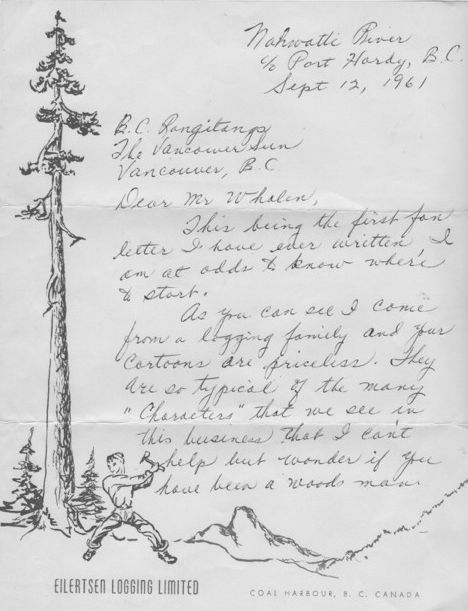 Nahwatti River
c/o Port Hardy, B.C.
Sept 12, 1961
B.C. Rangitangs
The Vancouver Sun
Vancouver, B.C.
Dear Mr Whalen,
This being the first fan
letter I have ever written I
am at odds to know where
to start.
As you can see I come
from a logging family and your
cartoons are priceless. They
are so typical of the many
"Characters" that we see in
this business that I can't
help but wonder if you
have been a woods man
EILERTSEN LOGGING LIMITED
COAL HARBOUR, B. C. CANADA